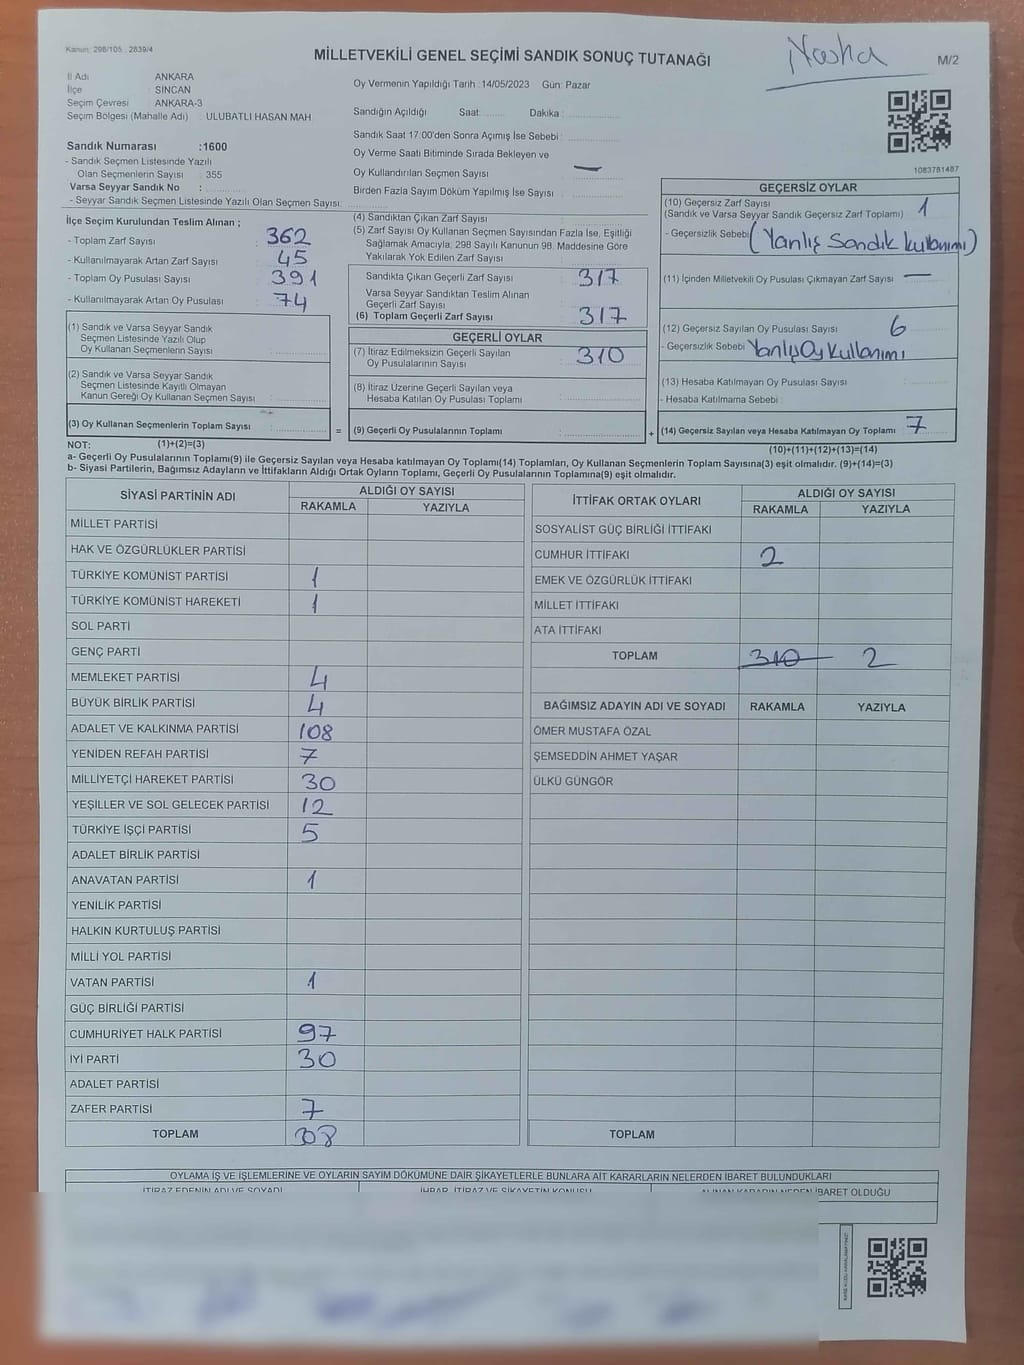 Kanun: 298/105 : 2839/4
MİLLETVEKİLİ GENEL SEÇİMİ SANDIK SONUÇ TUTANAĞI
M/2
İl Adı ANKARA
İlçe : SİNCAN
Seçim Çevresi : ANKARA-3
Seçim Bölgesi (Mahalle Adı) : ULUBATLI HASAN MAH
Oy Vermenin Yapıldığı Tarih : 14/05/2023 Gün: Pazar
Sandığın Açıldığı Saat: Dakika :
Sandık Saat 17.00'den Sonra Açımış İse Sebebi :
Oy Verme Saati Bitiminde Sırada Bekleyen ve
Oy Kullandırılan Seçmen Sayısı : —
Birden Fazla Sayım Döküm Yapılmış İse Sayısı :
Sandık Numarası :1600
- Sandık Seçmen Listesinde Yazılı
Olan Seçmenlerin Sayısı : 355
Varsa Seyyar Sandık No :
- Seyyar Sandık Seçmen Listesinde Yazılı Olan Seçmen Sayısı:
1083781487
İlçe Seçim Kurulundan Teslim Alınan ;
- Toplam Zarf Sayısı : 362
- Kullanılmayarak Artan Zarf Sayısı : 45
- Toplam Oy Pusulası Sayısı : 391
- Kullanılmayarak Artan Oy Pusulası : 74
(1) Sandık ve Varsa Seyyar Sandık
Seçmen Listesinde Yazılı Olup
Oy Kullanan Seçmenlerin Sayısı :
(2) Sandık ve Varsa Seyyar Sandık
Seçmen Listesinde Kayıtlı Olmayan
Kanun Gereği Oy Kullanan Seçmen Sayısı :
(3) Oy Kullanan Seçmenlerin Toplam Sayısı :
(4) Sandıktan Çıkan Zarf Sayısı :
(5) Zarf Sayısı Oy Kullanan Seçmen Sayısından Fazla İse, Eşitliği
Sağlamak Amacıyla, 298 Sayılı Kanunun 98. Maddesine Göre
Yakılarak Yok Edilen Zarf Sayısı :
Sandıkta Çıkan Geçerli Zarf Sayısı : 317
Varsa Seyyar Sandıktan Teslim Alınan
Geçerli Zarf Sayısı :
(6) Toplam Geçerli Zarf Sayısı : 317
GEÇERLİ OYLAR
(7) İtiraz Edilmeksizin Geçerli Sayılan
Oy Pusulalarının Sayısı : 310
(8) İtiraz Üzerine Geçerli Sayılan veya
Hesaba Katılan Oy Pusulası Toplamı :
= (9) Geçerli Oy Pusulalarının Toplamı :
GEÇERSİZ OYLAR
(10) Geçersiz Zarf Sayısı
(Sandık ve Varsa Seyyar Sandık Geçersiz Zarf Toplamı) : 1
- Geçersizlik Sebebi : (Yanlış Sandık kullanımı)
(11) İçinden Milletvekili Oy Pusulası Çıkmayan Zarf Sayısı : —
(12) Geçersiz Sayılan Oy Pusulası Sayısı : 6
- Geçersizlik Sebebi : Yanlış Oy Kullanımı
(13) Hesaba Katılmayan Oy Pusulası Sayısı :
- Hesaba Katılmama Sebebi :
+ (14) Geçersiz Sayılan veya Hesaba Katılmayan Oy Toplamı : 7
NOT: (1)+(2)=(3)
(10)+(11)+(12)+(13)=(14)
a- Geçerli Oy Pusulalarının Toplamı(9) ile Geçersiz Sayılan veya Hesaba katılmayan Oy Toplamı(14) Toplamları, Oy Kullanan Seçmenlerin Toplam Sayısına(3) eşit olmalıdır. (9)+(14)=(3)
b- Siyasi Partilerin, Bağımsız Adayların ve İttifakların Aldığı Ortak Oyların Toplamı, Geçerli Oy Pusulalarının Toplamına(9) eşit olmalıdır.
SİYASİ PARTİNİN ADI ALDIĞI OY SAYISI
RAKAMLA YAZIYLA
MİLLET PARTİSİ
HAK VE ÖZGÜRLÜKLER PARTİSİ
TÜRKİYE KOMÜNİST PARTİSİ 1
TÜRKİYE KOMÜNİST HAREKETİ 1
SOL PARTİ
GENÇ PARTİ
MEMLEKET PARTİSİ 4
BÜYÜK BİRLİK PARTİSİ 4
ADALET VE KALKINMA PARTİSİ 108
YENİDEN REFAH PARTİSİ 7
MİLLİYETÇİ HAREKET PARTİSİ 30
YEŞİLLER VE SOL GELECEK PARTİSİ 12
TÜRKİYE İŞÇİ PARTİSİ 5
ADALET BİRLİK PARTİSİ
ANAVATAN PARTİSİ 1
YENİLİK PARTİSİ
HALKIN KURTULUŞ PARTİSİ
MİLLİ YOL PARTİSİ
VATAN PARTİSİ 1
GÜÇ BİRLİĞİ PARTİSİ
CUMHURİYET HALK PARTİSİ 97
İYİ PARTİ 30
ADALET PARTİSİ
ZAFER PARTİSİ 7
TOPLAM 308
İTTİFAK ORTAK OYLARI ALDIĞI OY SAYISI
RAKAMLA YAZIYLA
SOSYALİST GÜÇ BİRLİĞİ İTTİFAKI
CUMHUR İTTİFAKI 2
EMEK VE ÖZGÜRLÜK İTTİFAKI
MİLLET İTTİFAKI
ATA İTTİFAKI
TOPLAM 310 2
BAĞIMSIZ ADAYIN ADI VE SOYADI RAKAMLA YAZIYLA
ÖMER MUSTAFA ÖZAL
ŞEMSEDDİN AHMET YAŞAR
ÜLKÜ GÜNGÖR
TOPLAM
OYLAMA İŞ VE İŞLEMLERİNE VE OYLARIN SAYIM DÖKÜMÜNE DAİR ŞİKAYETLERLE BUNLARA AİT KARARLARIN NELERDEN İBARET BULUNDUKLARI
İTİRAZ EDENİN ADI VE SOYADI İHBAR, İTİRAZ VE ŞİKAYETİN KONUSU ALINAN KARARIN NEDEN İBARET OLDUĞU